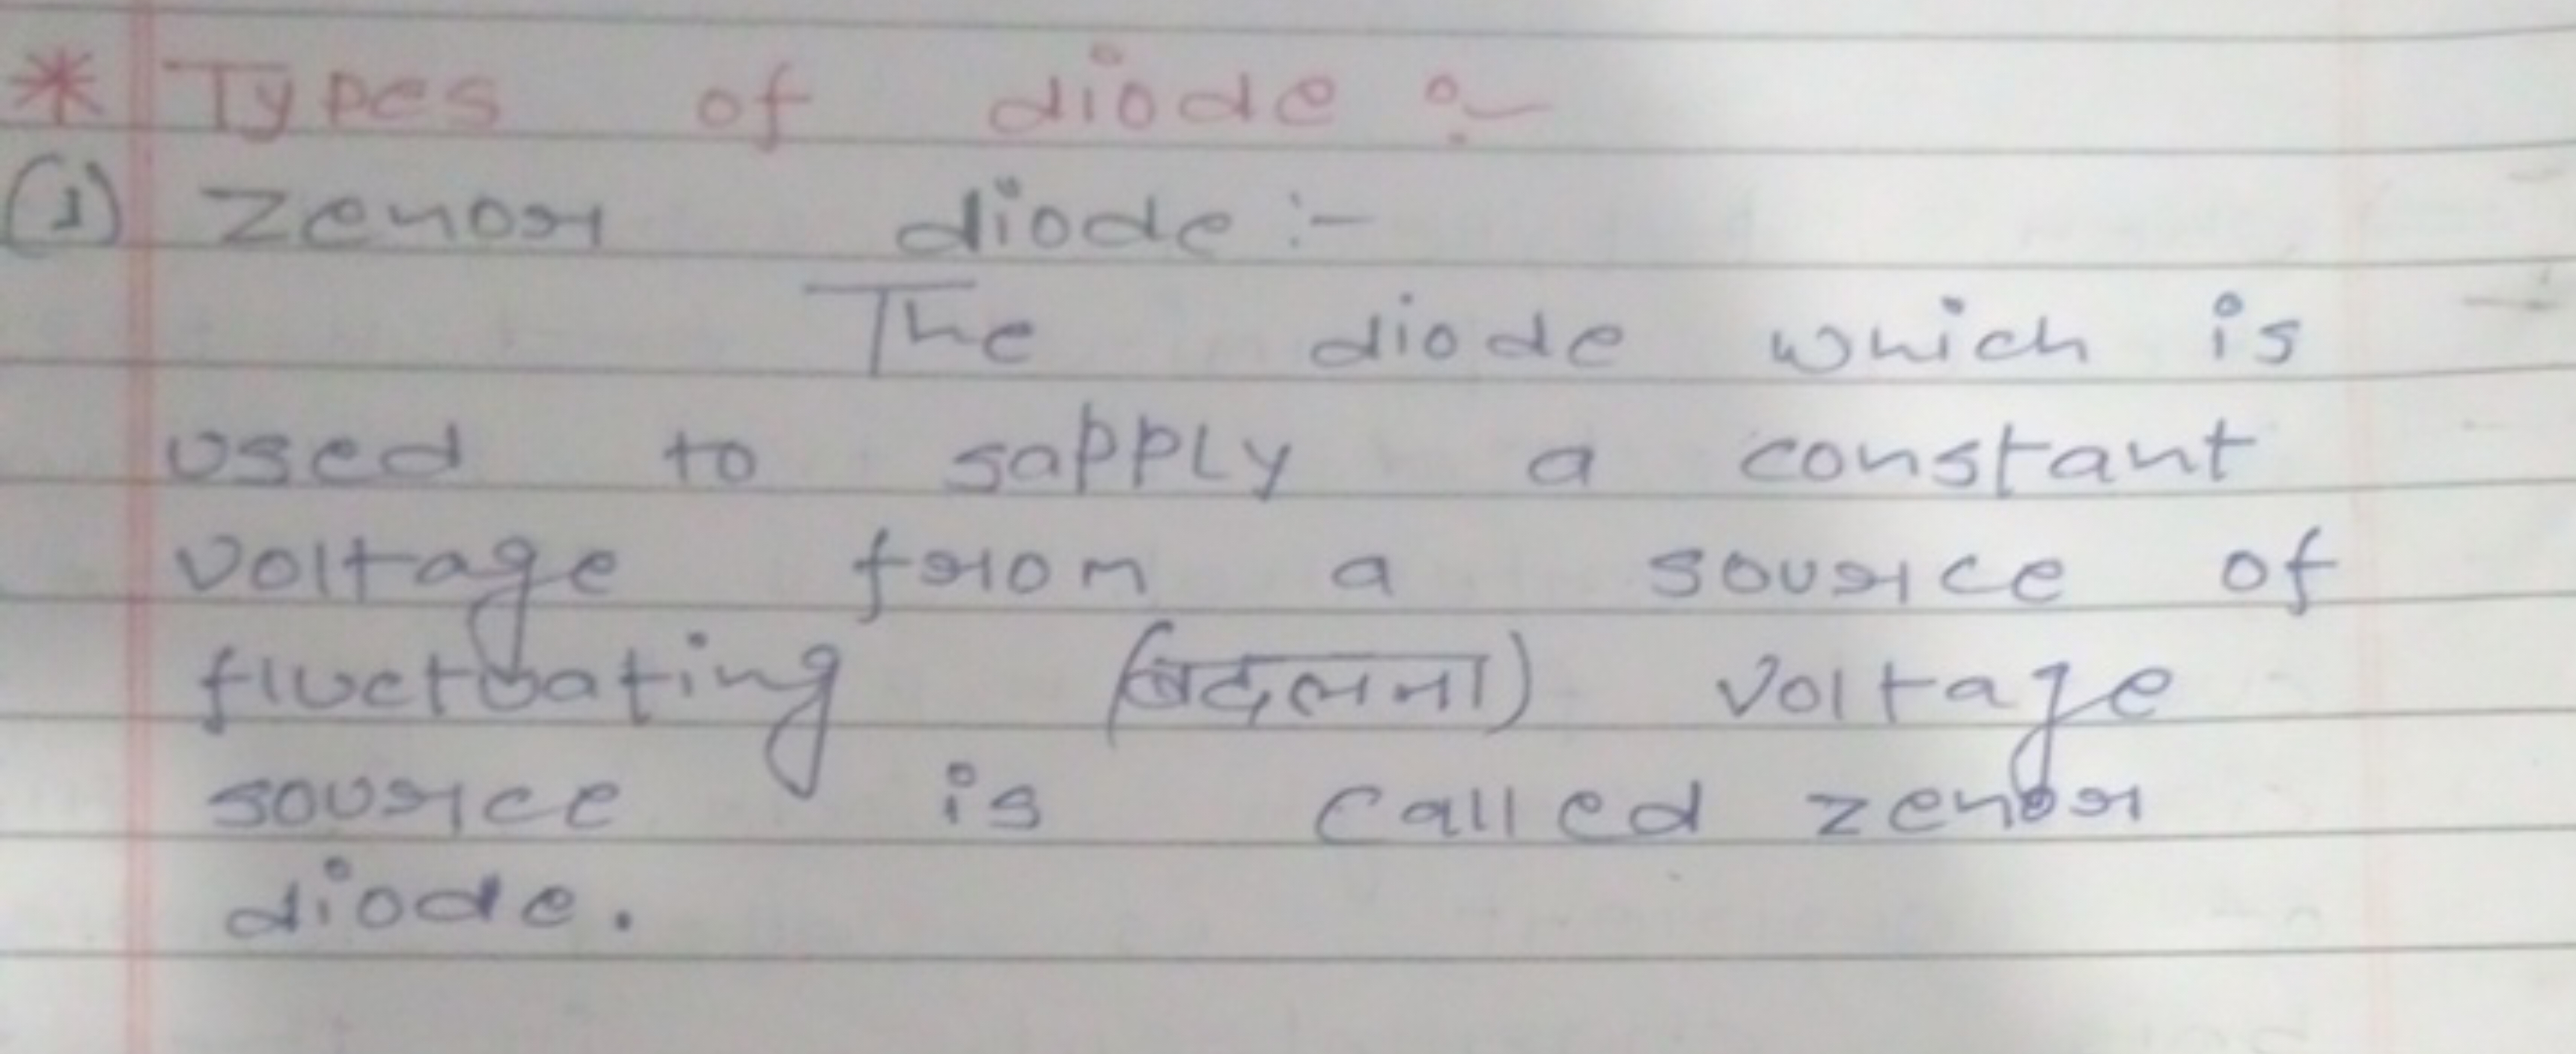 * Types of diode :-
(1) Zenor diode :-
The diode which is
used to sapply a constant
voltage from a source of
fluctuating (बदलना) voltage
source is called zenor
diode.